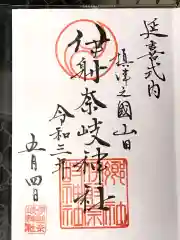 延喜式内
攝津之國山田
伊射奈岐神社
令和三年
五月四日